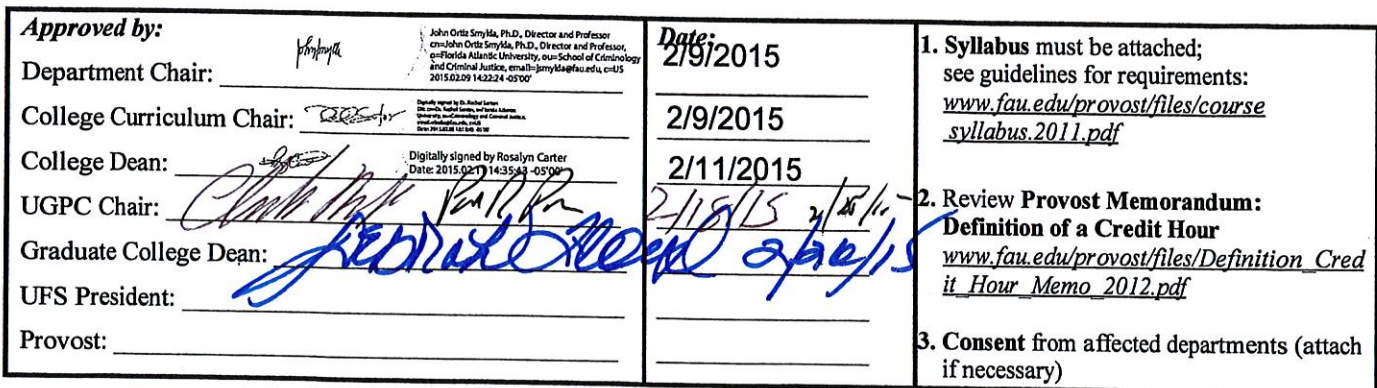 Approved by:
Date:
John Ortiz Smykla, Ph.D., Director and Professor
cn=John Ortiz Smykla, Ph.D., Director and Professor,
o=Florida Atlantic University, ou=School of Criminology
and Criminal Justice, email=jsmykla@fau.edu, c=US
2015.02.09 14:22:24 -05'00'
Department Chair:
2/9/2015
College Curriculum Chair:
2/9/2015
College Dean:
Digitally signed by Rosalyn Carter
2/11/2015
UGPC Chair:
2/18/15
Graduate College Dean:
UFS President:
Provost:
1. Syllabus must be attached;
see guidelines for requirements:
www.fau.edu/provost/files/course
syllabus.2011.pdf
2. Review Provost Memorandum:
Definition of a Credit Hour
www.fau.edu/provost/files/Definition_Cred
it_Hour_Memo_2012.pdf
3. Consent from affected departments (attach
if necessary)